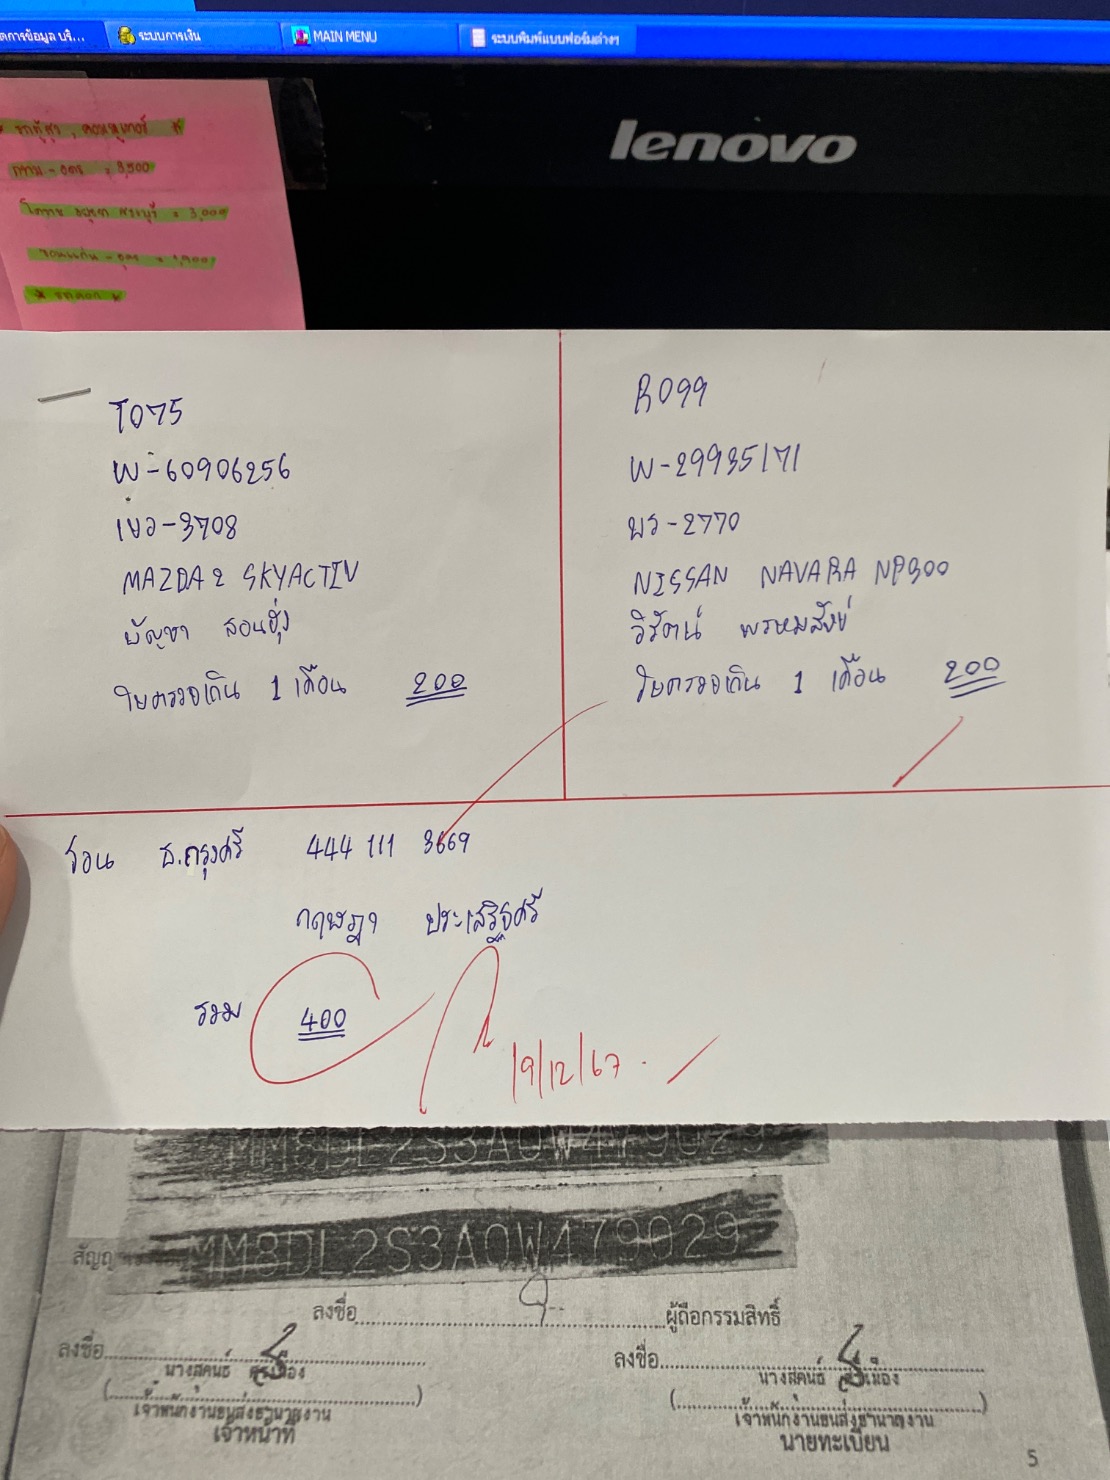 ระบบการเงิน
MAIN MENU
ระบบพิมพ์แบบฟอร์มต่างๆ
lenovo
= 3,500
= 3,000
T075
W-60906256
เขอ-3708
MAZDA 2 SKYACTIV
บัญชา สอนฮุ่ง
ใบตรวจเกิน 1 เดือน 200
R099
W-29935171
บร-2770
NISSAN NAVARA NP300
วิรัตน์ พรหมสังข์
ใบตรวจเกิน 1 เดือน 200
โอน ธ.กรุงศรี 444 111 3669
กฤษฎา ประเสริฐศรี
รวม 400
19/12/67
MM8DL2S3A0W479029
MM8DL2S3A0W479029
ลงชื่อ ผู้ถือกรรมสิทธิ์
ลงชื่อ
นางสุคนธ์
เจ้าพนักงานขนส่งชำนาญงาน
เจ้าหน้าที่
ลงชื่อ
นางสุคนธ์
เจ้าพนักงานขนส่งชำนาญงาน
นายทะเบียน
5